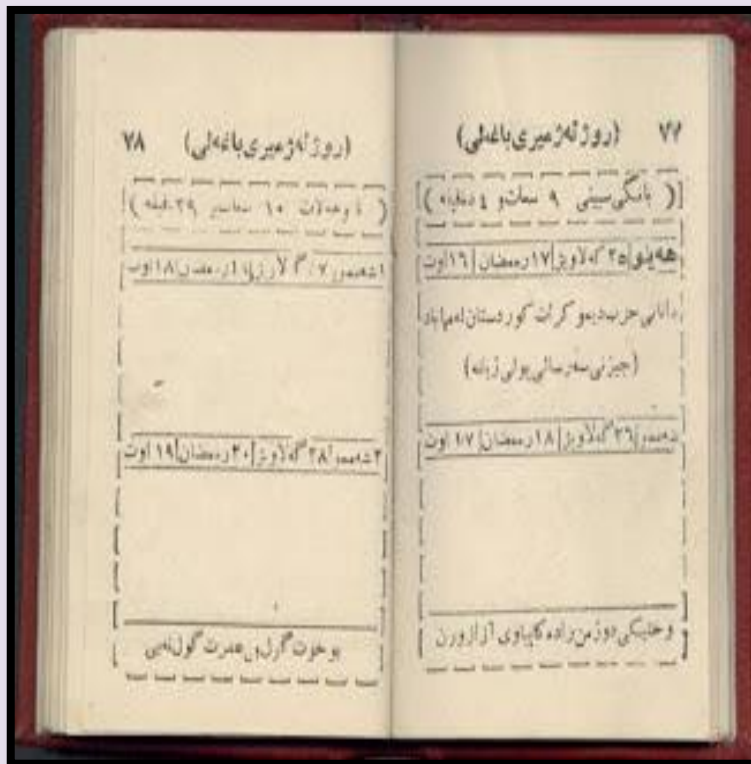 ٧٧ (روژ ئەژمیری باغەلی)
( بانگی سبینی ٩ سەعات و ٤ دەقیقە )
هەینو | ٢٥ گەلاویژ | ١٧ رەمضان | ١٦ اوت
دانانی حزب دیموکرات کوردستان لە مهاباد
(جیژنی سەرسالی یولی ژیانە)
شەممو | ٢٦ گەلاویژ | ١٨ رەمضان | ١٧ اوت
دوژمن زادە کاپیاوی آزاز ورن
(روژ ئەژمیری باغەلی) ٧٨
( تاوهەلات ١٠ سەعات ٢٩ دقیقە )
١ شەممو | ٢٧ گەلاویژ | ١٩ رەمضان | ١٨ اوت
٢ شەممو | ٢٨ گەلاویژ | ٢٠ رەمضان | ١٩ اوت
بوخوت گرل